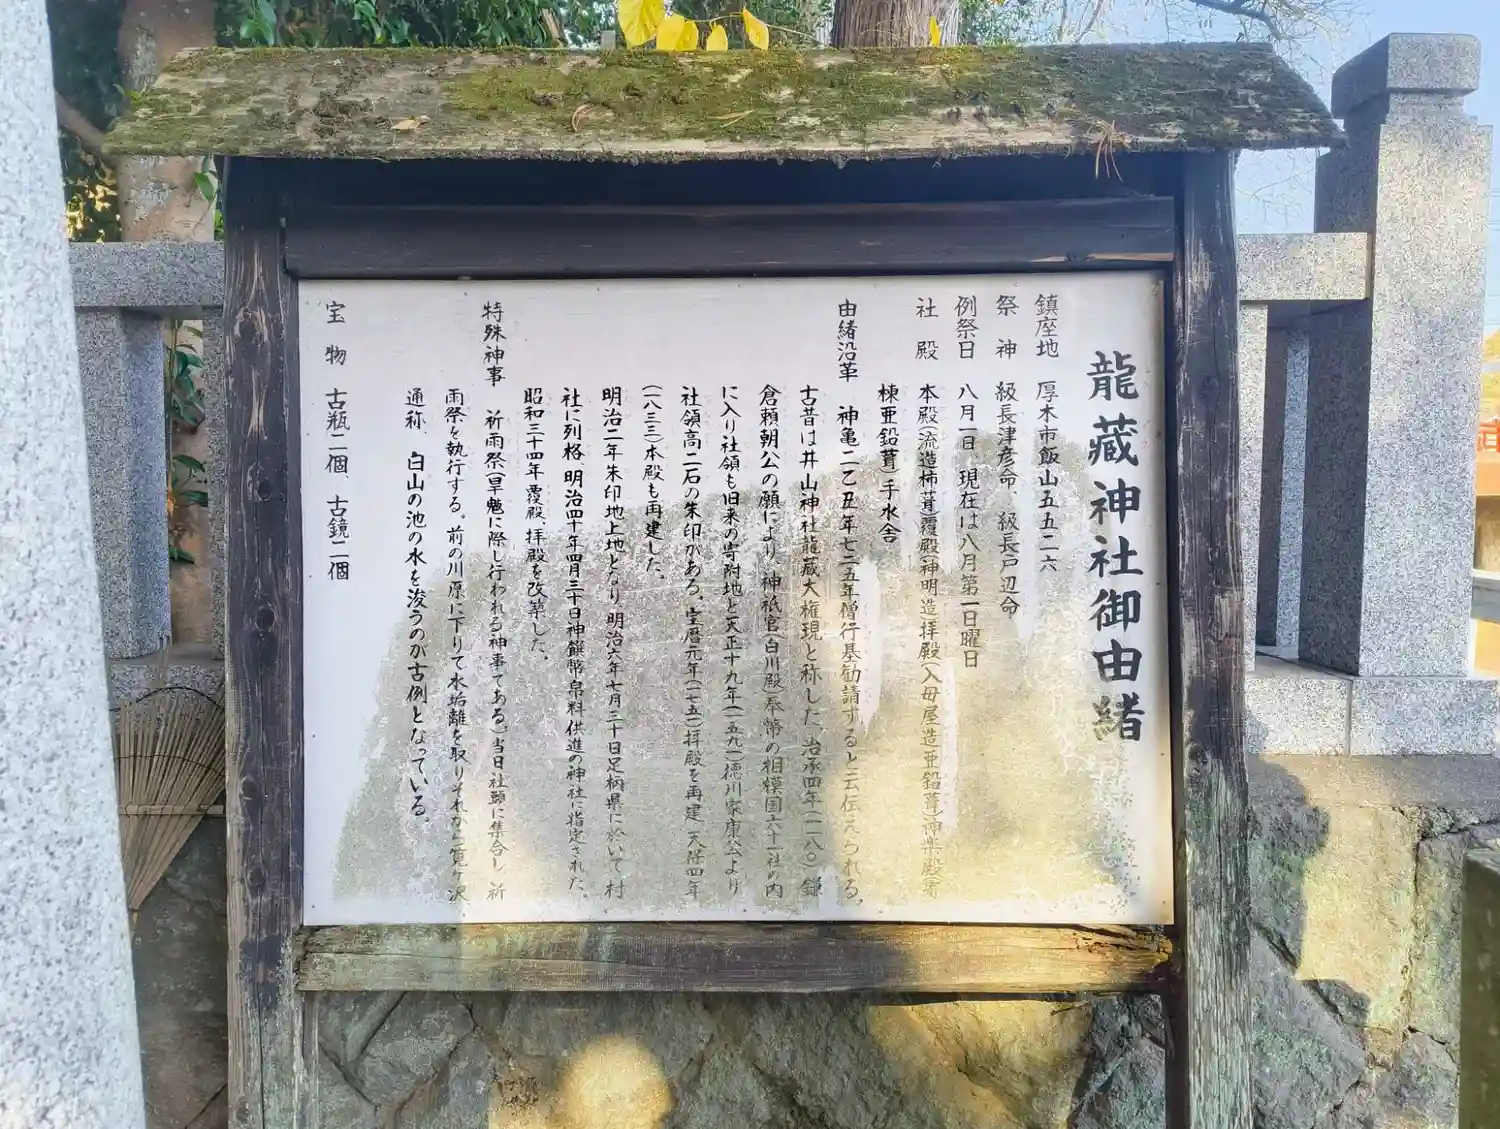 龍蔵神社御由緒
鎮座地 厚木市飯山五五二六
祭神 級長津彦命、級長戸辺命
例祭日 八月一日 現在は八月第一日曜日
社殿 本殿(流造柿葺)覆殿(神明造)拝殿(入母屋造亜鉛葺)神楽殿(寄
棟亜鉛葺)手水舎
由緒沿革 神亀二乙丑年七二五年僧行基勧請すると云伝えられる。
古昔は井山神社龍蔵大権現と称した 治承四年(一一八〇)鎌
倉頼朝公の願により、神祇官(白川殿)奉幣の相模国六十一社の内
に入り社領も旧来の寄附地と天正十九年(一五九一)徳川家康公より
社領高二石の朱印がある。宝暦元年(一七五一)拝殿を再建 天保四年
(一八三三)本殿も再建した。
明治二年朱印地上地となり 明治六年七月三十日足柄県に於いて村
社に列格 明治四十年四月三十日神饌幣帛料供進の神社に指定された。
昭和三十四年覆殿、拝殿を改築した。
特殊神事 祈雨祭(旱魃に際し行われる神事である)当日社頭に集合し 祈
雨祭を執行する。前の川原に下りて水垢離を取りそれから二覧ヶ沢
通称、白山の池の水を浚うのが古例となっている。
宝物 古瓶二個、古鏡二個